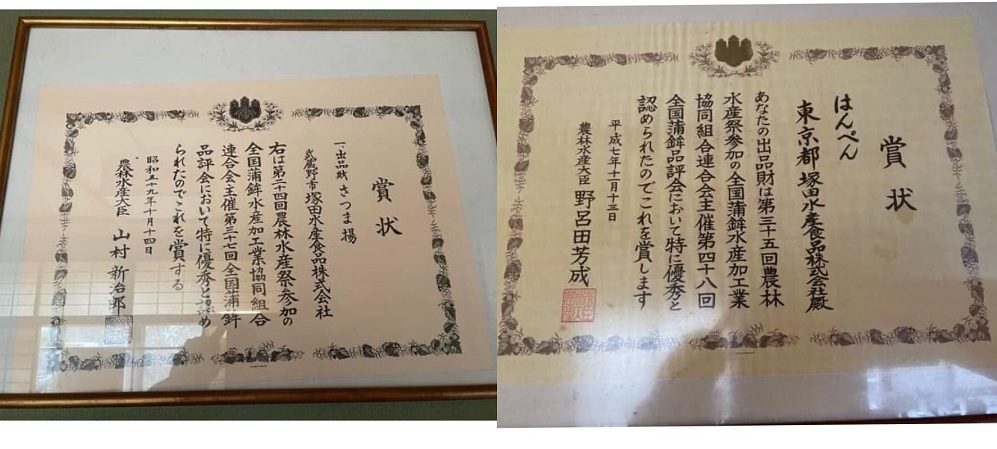 賞状
一、出品財 さつま揚
武蔵野市 塚田水産食品株式会社
右は第二十四回農林水産祭参加の
全国蒲鉾水産加工業協同組合
連合会主催第三十七回全国蒲鉾
品評会において特に優秀と認め
られたのでこれを賞する
昭和五十九年十月十四日
農林水産大臣 山村新治郎
賞状
はんぺん
東京都 塚田水産食品株式会社殿
あなたの出品財は第三十五回農林
水産祭参加の全国蒲鉾水産加工業
協同組合連合会主催第四十八回
全国蒲鉾品評会において特に優秀と
認められたのでこれを賞します
平成七年十一月十三日
農林水産大臣 野呂田芳成